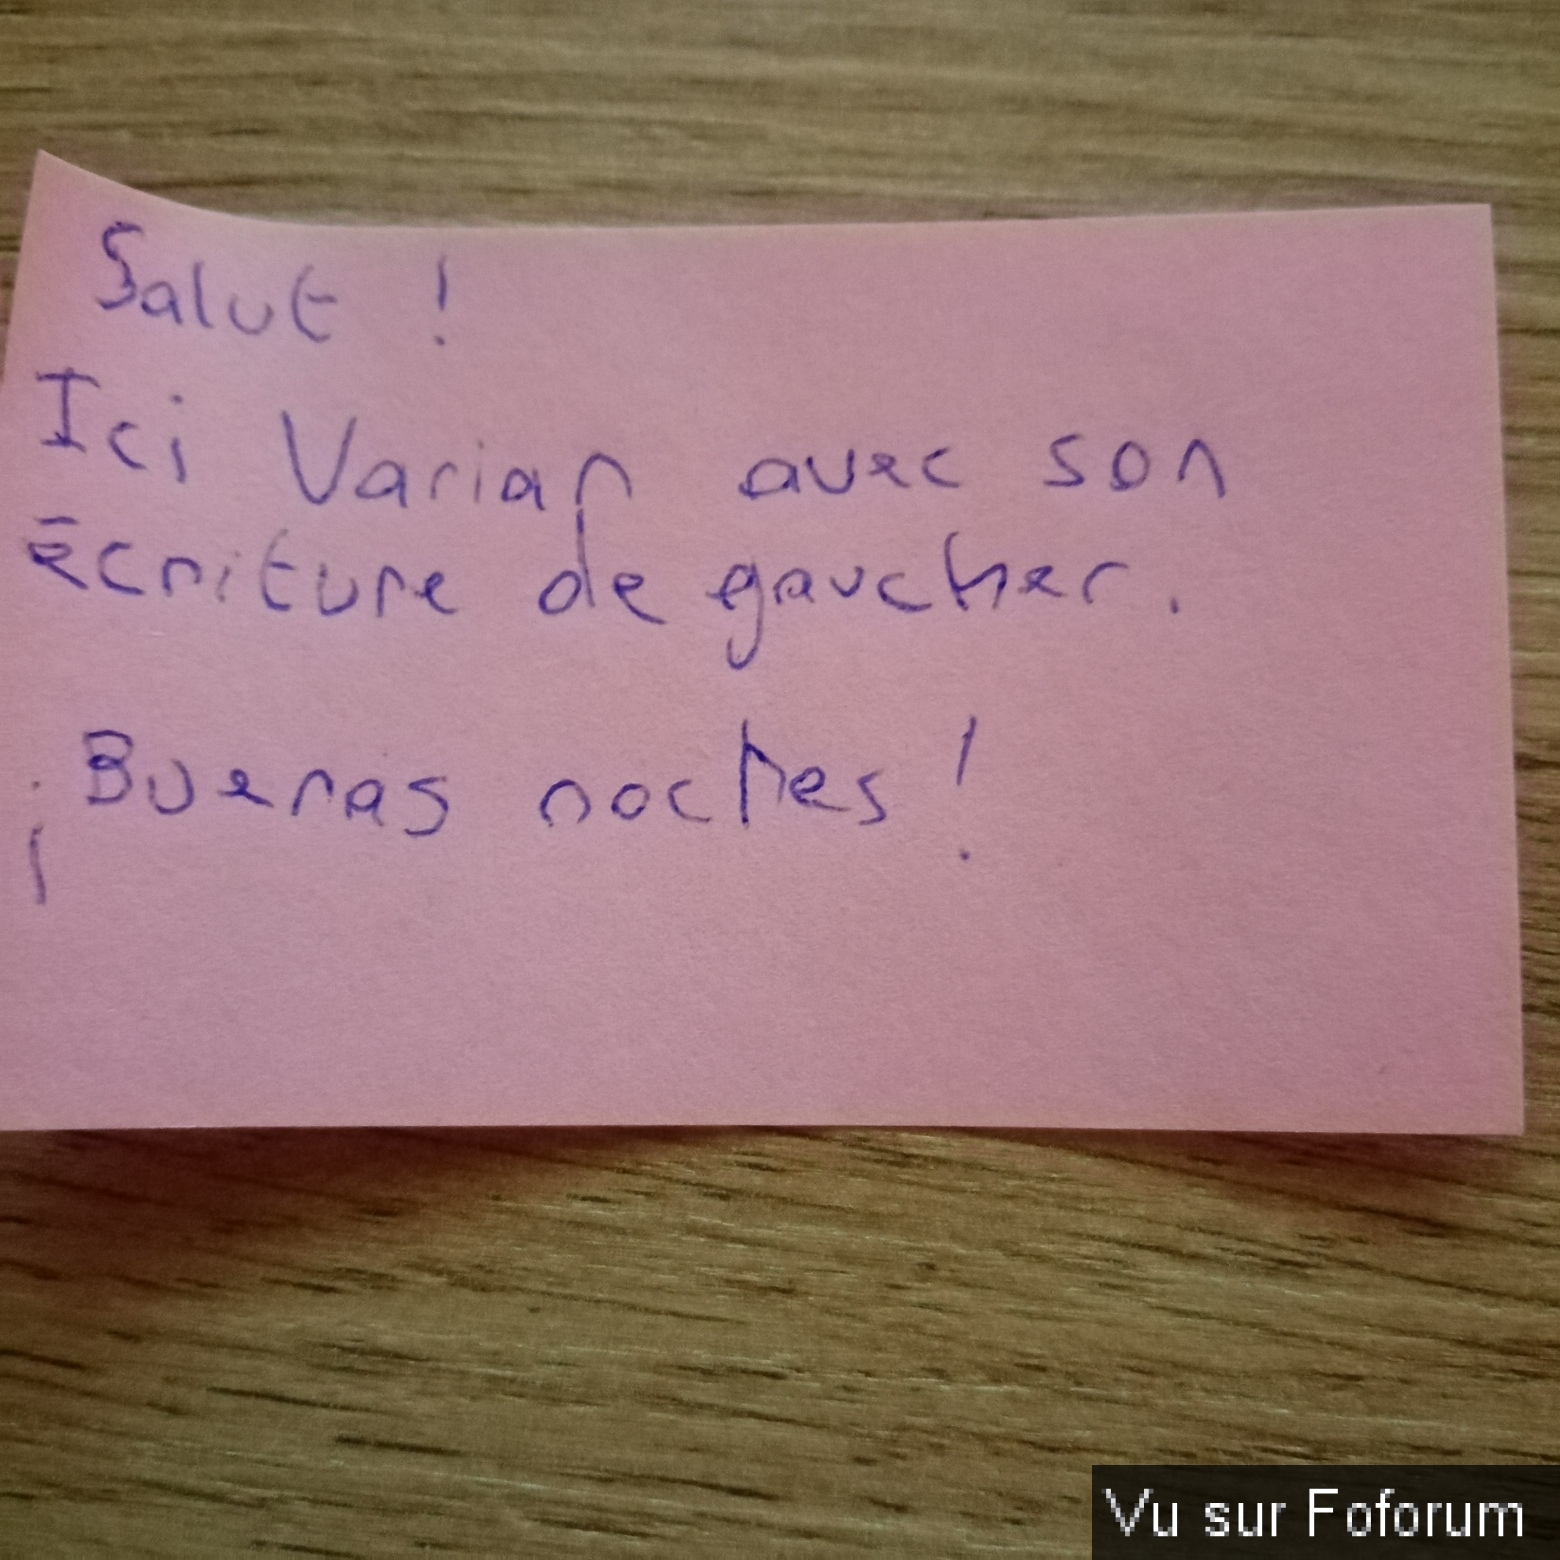 Salut !
Ici Varian avec son
écriture de gaucher.
¡Buenas noches!
Vu sur Foforum